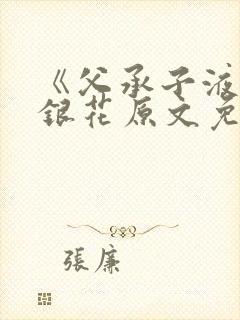 《父承子液
銀花原文免
張廉